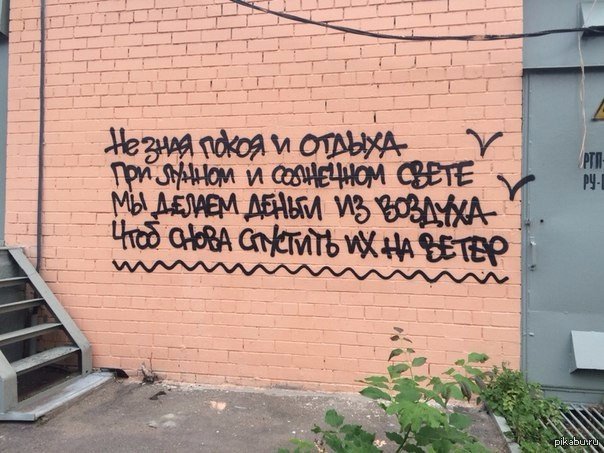 Не зная покоя и отдыха
При лунном и солнечном свете
Мы делаем деньги из воздуха
Чтоб снова спустить их на ветер
РТП
РУ-
pikabu.ru